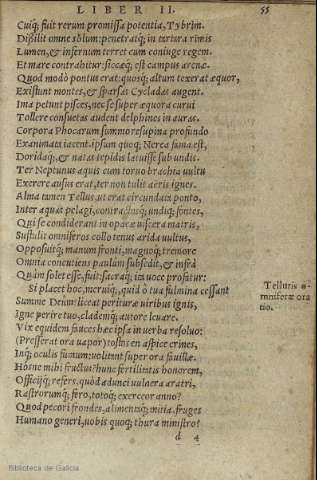 LIBER II. 55
Cuiq; fuit rerum promissa potentia, Tybrim.
Dißilit omne solum: penetratq; in tartara rimis
Lumen, & infernum terret cum coniuge regem.
Et mare contrahitur: siccæq; est campus arenæ.
Quod modò pontus erat: quosq; altum texerat æquor,
Existunt montes, & sparsas Cycladas augent.
Ima petunt pisces, nec se super æquora curui
Tollere consuetas audent delphines in auras.
Corpora Phocarum summo resupina profundo
Exanimata iacent. ipsum quoq; Nerea fama est,
Doridaq; & natas tepidis latuisse sub undis.
Ter Neptunus aquis cum toruo brachia uultu
Exerere ausus erat, ter non tulit aeris ignes.
Alma tamen Tellus, ut erat circundata ponto,
Inter aquas pelagi, contractosq; undiq; fontes,
Qui se condiderant in opacæ uiscera matris,
Sustulit omniferos collo tenus arida uultus,
Opposuitq; manum fronti, magnoq; tremore
Omnia concutiens paulum subsedit, & infra
Quàm solet esse, fuit: sacraq; ita uoce profatur:
Si placet hoc, meruiq;, quid ô tua fulmina cessant
Telluris o-
mniferæ ora
tio.
Summe Deum: liceat perituræ uiribus ignis,
Igne perire tuo, clademq; autore leuare.
Vix equidem fauces hæc ipsa in uerba resoluo:
(Presserat ora uapor) tostos en aspice crines,
Inq; oculis fumum: uolitant super ora fauillæ.
Hósne mihi fructus? hunc fertilitatis honorem,
Officijq; refers, quòd adunci uulnera aratri,
Rastrorumq; fero, totoq; exerceor anno?
Quod pecori frondes, alimentaq; mitia, fruges
Humano generi, uobis quoq; thura ministro?
d 4
Biblioteca de Galicia